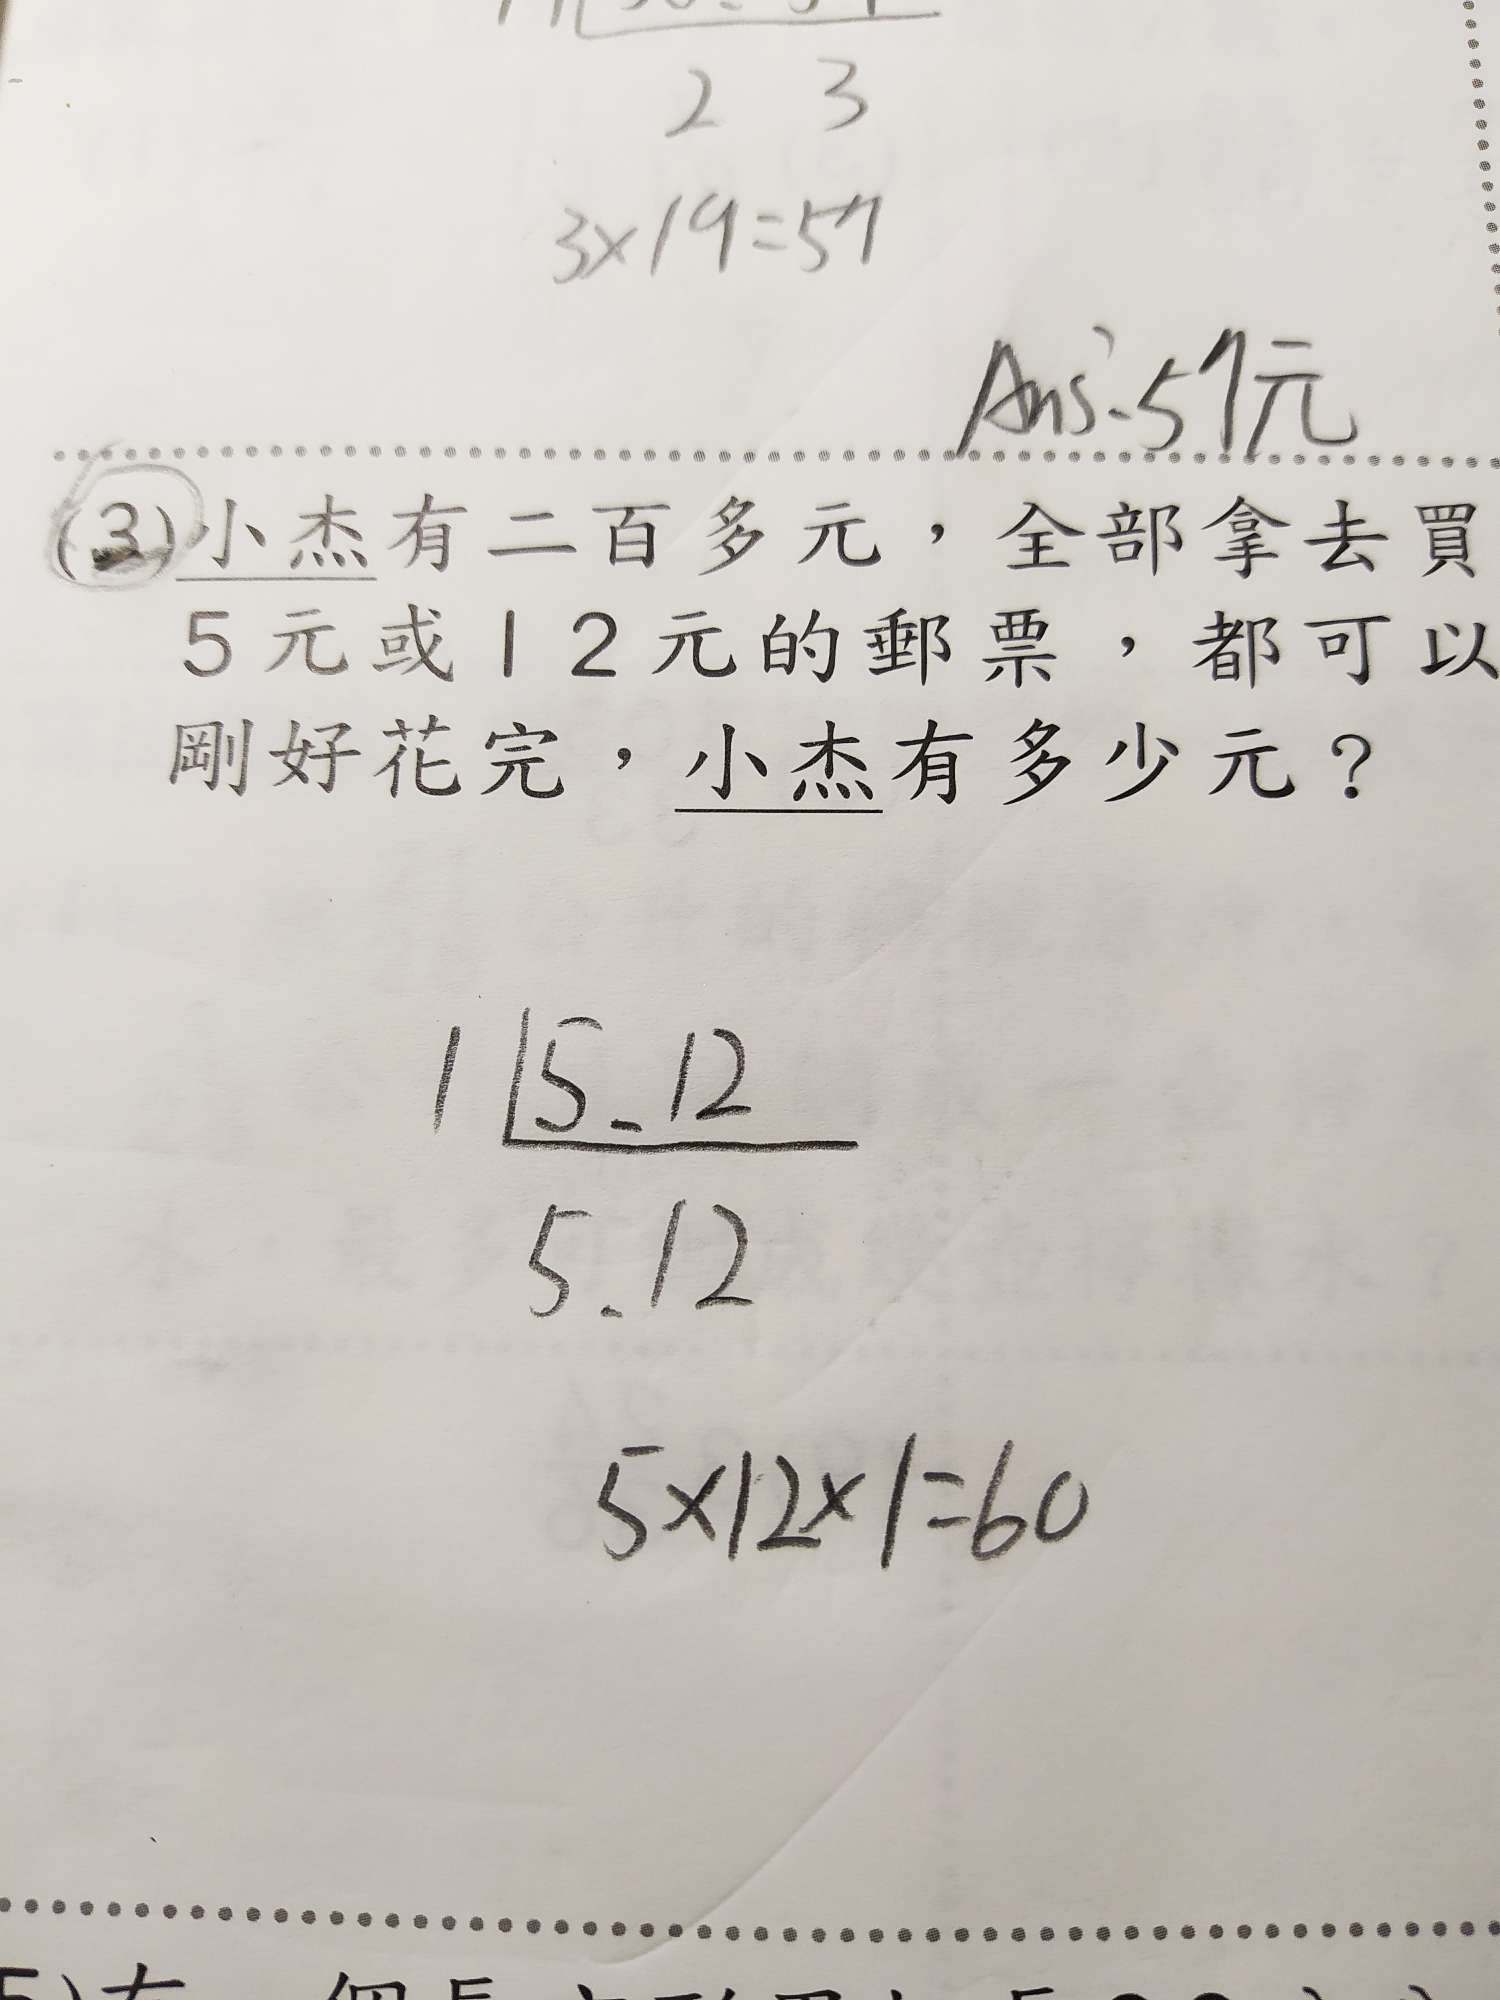 2 3
3×19=57
Ans:57元
(3)小杰有二百多元，全部拿去買
5元或12元的郵票，都可以
剛好花完，小杰有多少元？
1 5、12
5、12
5×12×1=60